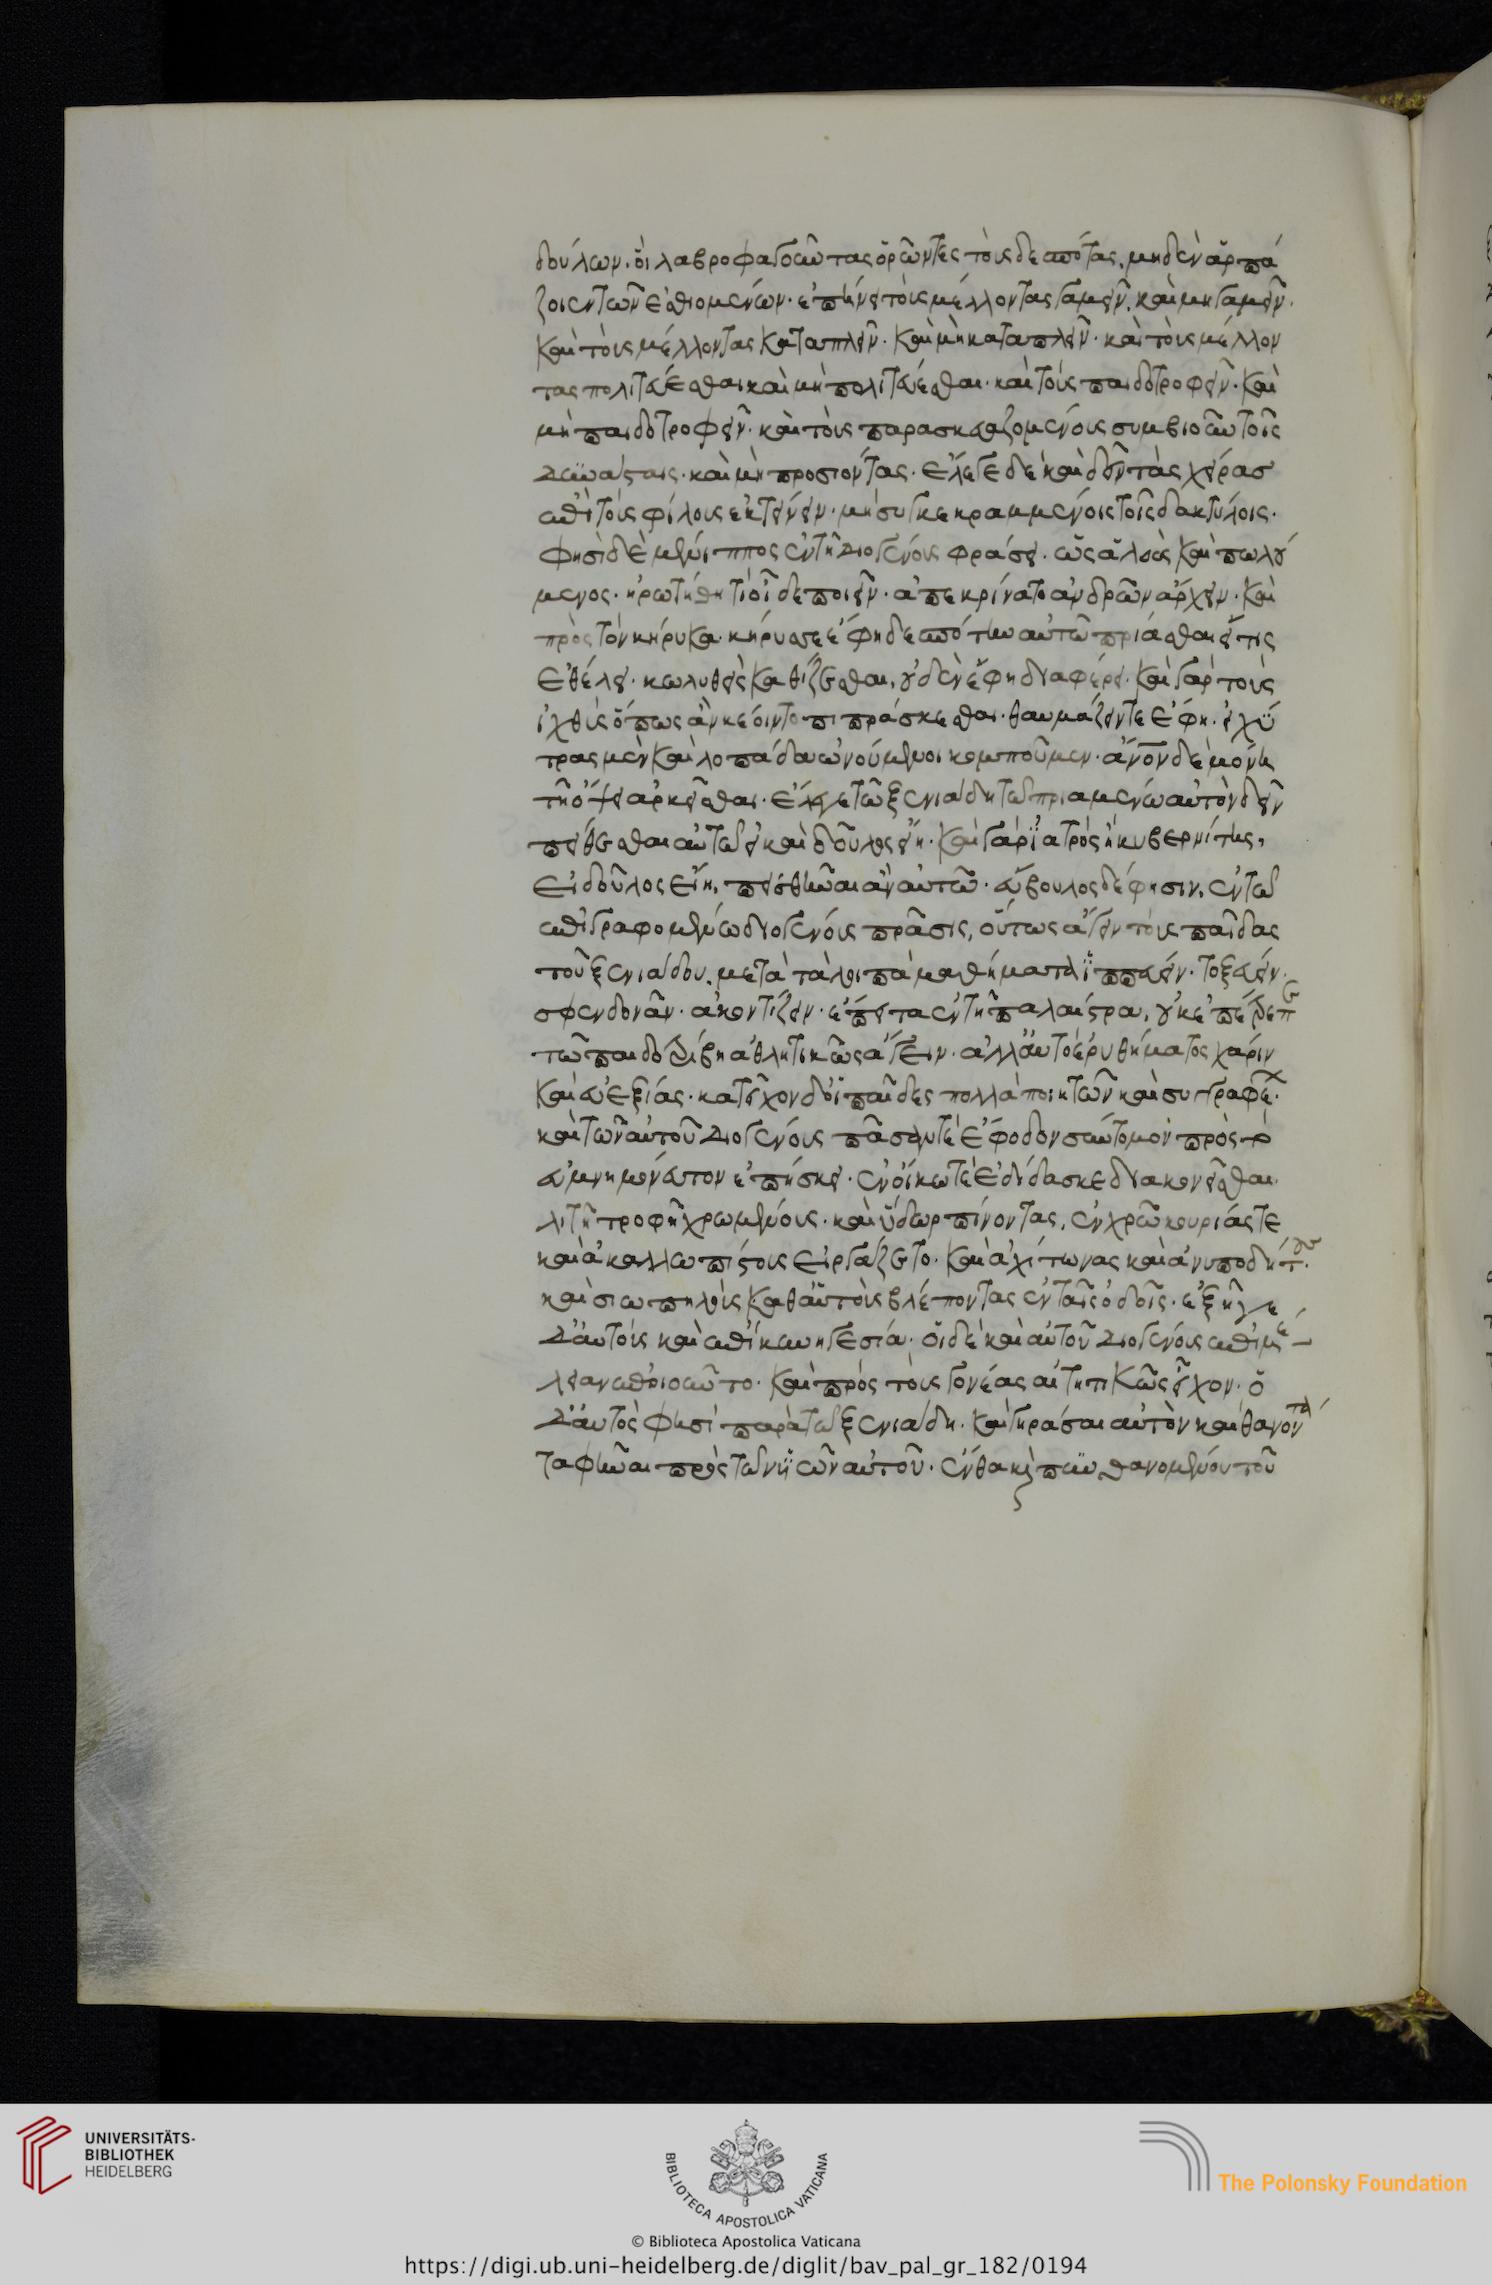 δούλων. ὅι λαβροφαγοῦντας ὁρῶντες τοὺς δεσπότας, μηδὲν ἁρπά
ζοιεν τῶν ἐσθιομένων. ἐπήνει τοὺς μέλλοντας γαμεῖν. καὶ μὴ γαμεῖν.
καὶ τοὺς μέλλοντας καταπλεῖν. καὶ μὴ καταπλεῖν. καὶ τοὺς μέλλον
τας πολιτεύεσθαι καὶ μὴ πολιτεύεσθαι. καὶ τοὺς παιδοτροφεῖν. καὶ
μὴ παιδοτροφεῖν. καὶ τοὺς παρασκευαζομένους συμβιοῦν τοῖς
δυνάσταις. καὶ μὴ προσιόντας. ἔλεγε δὲ καὶ δεῖν τὰς χεῖρας
ἐπὶ τοὺς φίλους ἐκτείνειν. μὴ συγκεκραμμένοις τοῖς δακτύλοις.
φησὶ δὲ μένιππος ἐν τῆ διογένους πράσει. ὡς ἁλοὺς καὶ πωλού
μενος. ἠρωτήθη τί οἶδε ποιεῖν. ἀπεκρίνατο ἀνδρῶν ἄρχειν. καὶ
πρὸς τὸν κήρυκα. κήρυσσε ἔφη δεσπότην αὐτῶ πριάσθαι εἴ τις
ἐθέλει. κωλυθεὶς καθίζεσθαι, οὐδὲν ἔφη διαφέρει. καὶ γὰρ τοὺς
ἰχθῦς ὅπως ἂν κέοιντο πιπράσκεσθαι. θαυμάζειν τε ἔφη. εἰ χύ
τρας μὲν καὶ λοπάδα ὠνούμενοι κομποῦμεν. ἄνον δὲ μόνη
τῆ ὄψει ἀρκεῖσθαι. ἔλεγε τῶ ξενιάδη τῶ πριαμένω αὐτὸν δεῖν
πείθεσθαι αὐτῶ εἰ καὶ δοῦλος εἴη. καὶ γὰρ ἰατρὸς ἢ κυβερνήτης,
εἰ δοῦλος εἴη, πεισθῆναι ἂν αὐτῶ. εὔβουλος δέ φησιν, ἐν τῶ
ἐπιγραφομένω διογένους πρᾶσις, οὕτως ἄγειν τοὺς παῖδας
τοῦ ξενιάδου. μετὰ τὰ λοιπὰ μαθήματα ἱππεύειν. τοξεύειν.
σφενδονᾶν. ἀκοντίζειν. ἔπειτα ἐν τῆ παλαίστρα, οὐκ ἐπέτρεπε
τῶ παιδοτρίβη ἀθλητικῶς ἄγειν. ἀλλ' αὐτὸ ἐρυθήματος χάριν
καὶ εὐεξίας. κατεῖχον δὲ οἱ παῖδες πολλὰ ποιητῶν καὶ συγγραφέ.
καὶ τῶν αὐτοῦ διογένους πᾶσάν τε ἔφοδον σύντομον πρὸς τὸ
εὐμνημόνευτον ἐπήσκει. ἐν οἴκω τε ἐδίδασκε διακονεῖσθαι
λιτῆ τροφῆ χρωμένους. καὶ ὕδωρ πίνοντας, ἐν χρῶ κουρίας τε
καὶ ἀκαλλωπίστους εἰργάζετο. καὶ ἀχίτωνας καὶ ἀνυποδήτ.
καὶ σιωπηλοὺς. καθ' αὑτοὺς βλέποντας ἐν ταῖς ὁδοῖς. ἐξῆγε
δ' αὐτοὺς καὶ ἐπὶ κυνηγεσία. οἱ δὲ καὶ αὐτοῦ διογένους ἐπιμέ
λειαν ἐποιοῦντο. καὶ πρὸς τοὺς γονέας αἰτητικῶς εἶχον. ὁ
δ' αὐτὸς φησὶ παρὰ τῶ ξενιάδη. καὶ γηρᾶσαι αὐτὸν καὶ θανόντα
ταφῆναι πρὸς τῶν υἱῶν αὐτοῦ. ἔνθα καὶ πυνθανομένου τοῦ
UNIVERSITÄTS-
BIBLIOTHEK
HEIDELBERG
BIBLIOTECA APOSTOLICA VATICANA
The Polonsky Foundation
© Biblioteca Apostolica Vaticana
https://digi.ub.uni-heidelberg.de/diglit/bav_pal_gr_182/0194